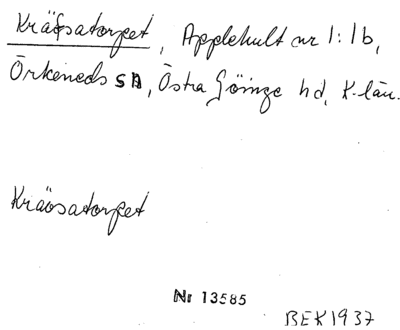 Kräfsatorpet, Applehult nr 1:1b,
Örkeneds SN, Östra Göinge hd, K-län.
Kräosatorpet
Nr 13585
BEK 1937